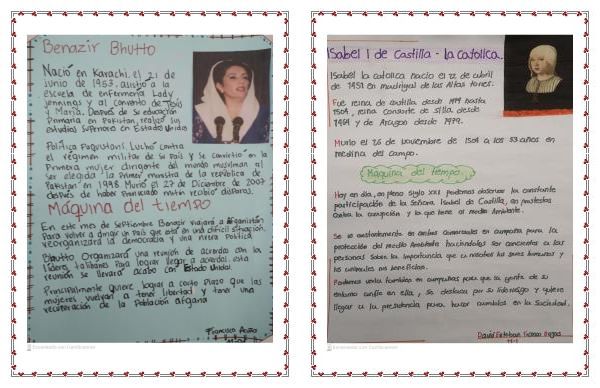 Benazir Bhutto
Nació en Karachi, el 21 de
junio de 1953, asistió a la
escuela de enfermería Lady
Jennings y al convento de Jesús
y María. Después de su educación
Primaria en Pakistán, realizó sus
estudios superiores en Estados Unidos
Política Paquistaní. Luchó contra
el régimen militar de su país y se convirtió en la
Primera mujer dirigente del mundo musulmán al
ser elegida la Primer ministra de la república de
Pakistán en 1998. Murió el 27 de Diciembre de 2007
después de haber pronunciado mitin recibió disparos.
Máquina del tiempo
En este mes de Septiembre Benazir viajará a Afganistán
Para volver a armar un país que está en una difícil situación,
reorganizará la democracia y una nueva Política
Bhutto Organizará una reunión de acuerdo con la
líderes talibanes para lograr llegar a acuerdos, esta
reunión se llevará acabo con Estado Unido.
Principalmente quiere lograr a corto Plazo que las
mujeres vuelvan a tener libertad y tener una
recuperación de la Población afgana
Francisco
Escaneado con CamScanner
Isabel I de Castilla - la católica.
Isabel la católica nacio el 22 de abril
de 1451 en madrigal de las Altas torres.
Fue reina de castilla desde 1474 hasta
1504, reina consorte de sicilia desde
1469 y de Aragon desde 1479.
Murio el 26 de noviembre de 1504 a los 53 años en
medina del campo.
Máquina del tiempo
Hoy en día, en pleno Siglo XXI podemos observar la constante
participación de la Señora Isabel de Castilla, en protestas
contra la corrupción y lo que tiene al medio Ambiente.
Se va constantemente en ambas comerciales en campaña para la
protección del medio Ambiente haciendoles ser conscientes a las
personas Sobre la importancia que es nosotros los seres humanos y
los animales nos beneficien.
Podemos verla también en campañas para que la gente de su
entorno confíe en ella, se destaca por su liderazgo y quiere
llegar a la presidencia para hacer cambios en la Sociedad.
David Esteban
11-1
Escaneado con CamScanner